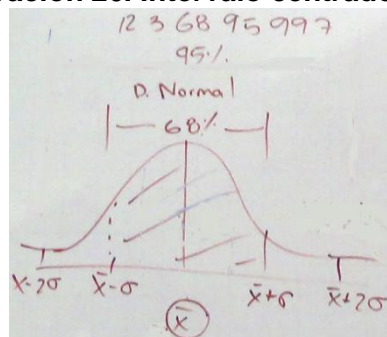 12 3 68 95 997
95%
D. Normal
68%
x-2σ x̄-σ x̄+σ x̄+2σ
x̄